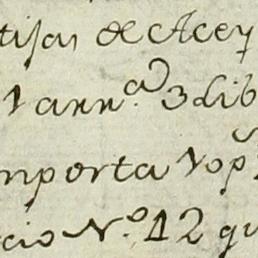 tijas de Acey
1 arr.ª 3 lib
mporta Vop
cio N.º 12 qu